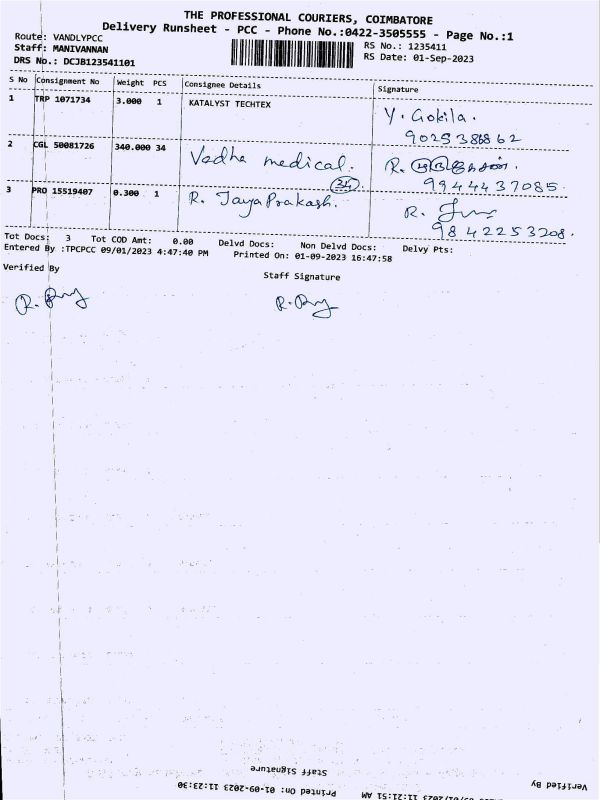 THE PROFESSIONAL COURIERS, COIMBATORE
Delivery Runsheet - PCC - Phone No.:0422-3505555 - Page No.:1
Route: VANDLYPCC
RS No.: 1235411
Staff: MANIVANNAN
RS Date: 01-Sep-2023
DRS No.: DCJB123541101
S No Consignment No Weight PCS Consignee Details Signature
1 TRP 1071734 3.000 1 KATALYST TECHTEX Y. Gokila.
9025388862
2 CGL 50081726 340.000 34 Vadha medical. R.
34 9944437085.
3 PRO 15519407 0.300 1 R. JayaPrakash. R.
9842253208.
Tot Docs: 3 Tot COD Amt: 0.00 Delvd Docs: Non Delvd Docs: Delvy Pts:
Entered By :TPCPCC 09/01/2023 4:47:40 PM Printed On: 01-09-2023 16:47:58
Verified By Staff Signature
Staff Signature
Verified By
Printed On: 01-09-2023 11:23:30
11:21:51 AM